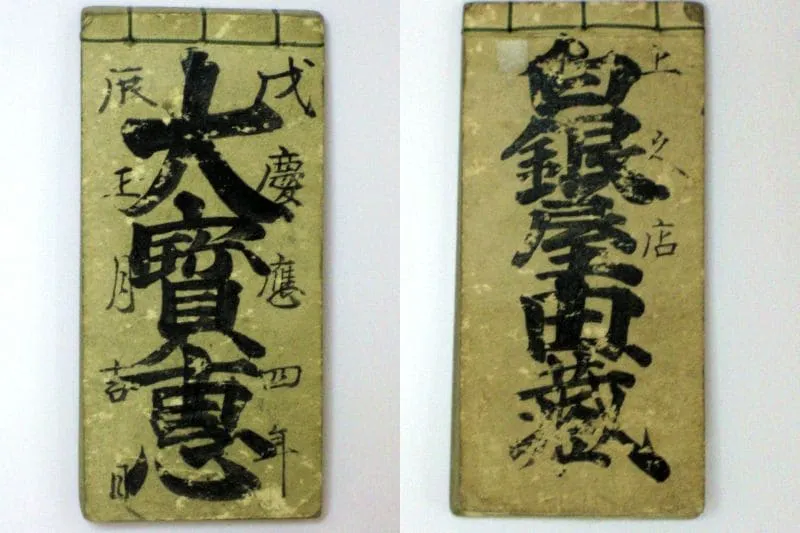 戊慶應四年
大寶恵
辰正月吉日
上之店
白銀屋由藏